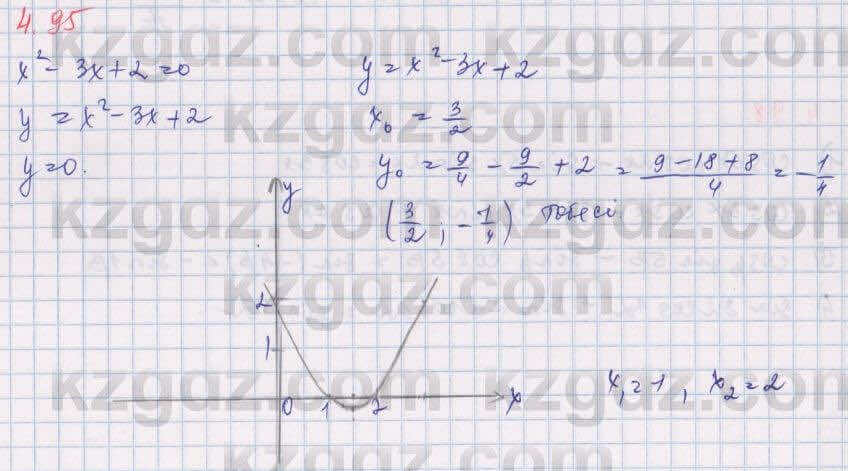 4.95
x² - 3x + 2 = 0
y = x² - 3x + 2
y = 0.
y = x² - 3x + 2
x₀ = 3/2
y₀ = 9/4 - 9/2 + 2 = (9 - 18 + 8)/4 = -1/4
(3/2 ; -1/4) төбесі
y
2
1
0 1 2 x
x₁ = 1, x₂ = 2
kzgdz.com
kzgdz.com
kzgdz.com
kzgdz.com
kzgdz.com
kzgdz.com
kzgdz.com